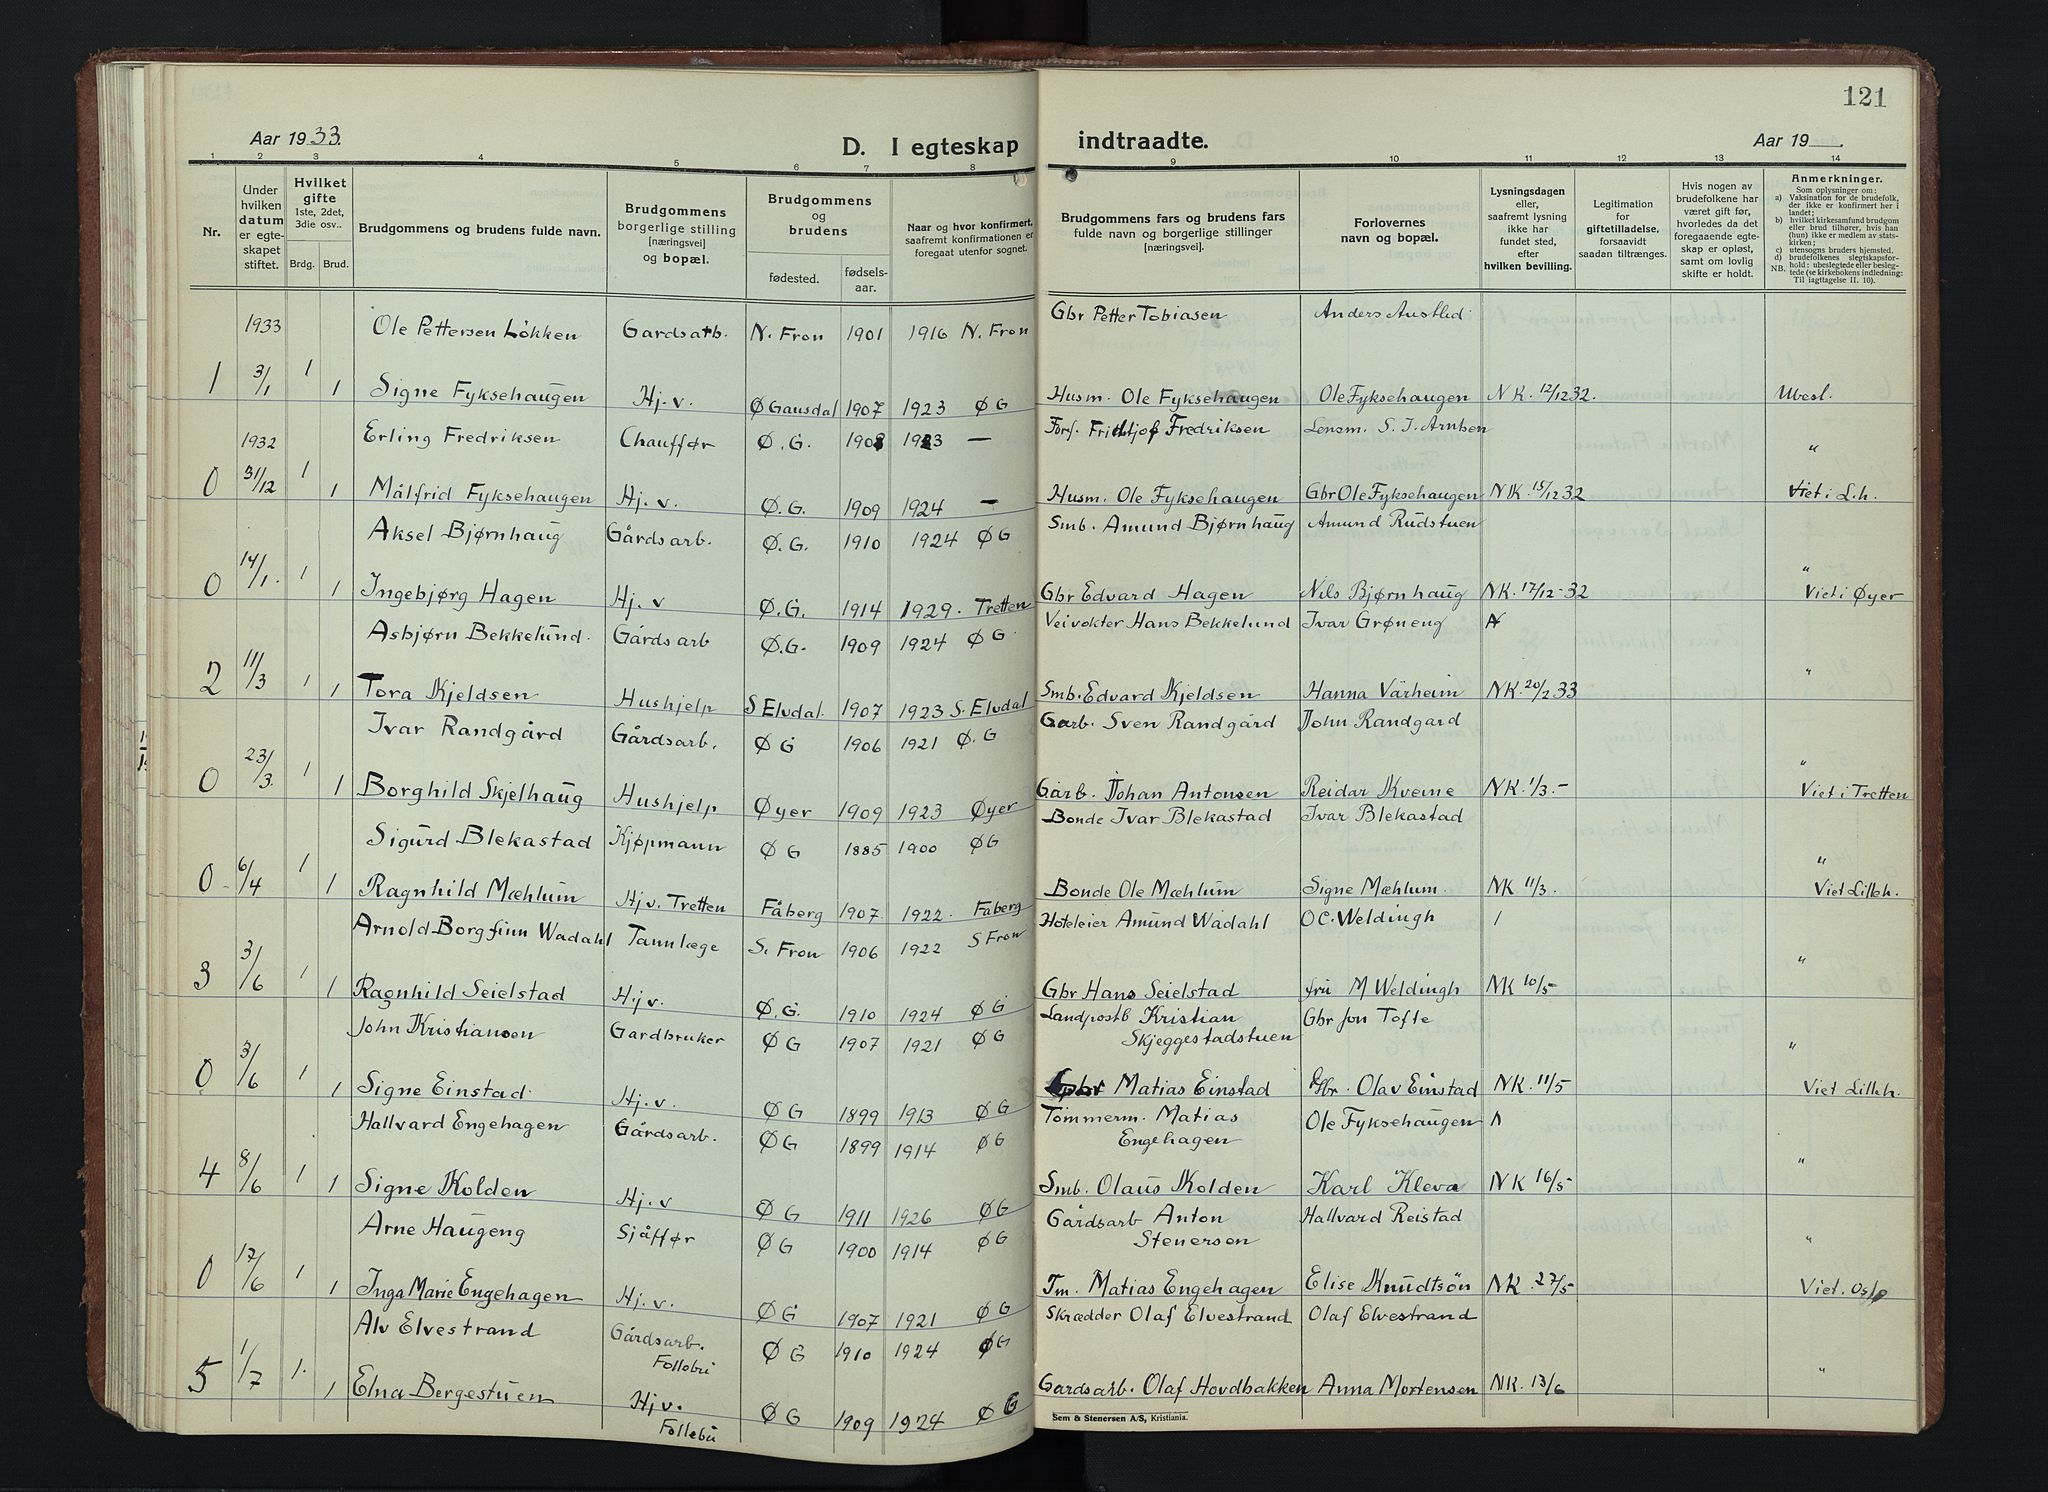 121
Aar 1933.
D. I egteskap indtraadte.
Aar 19
1 2 3 4 5 6 7 8 9 10 11 12 13 14
Nr.
Under hvilken datum er egteskapet stiftet.
Hvilket gifte 1ste, 2det, 3die osv..
Brdg. Brud.
Brudgommens og brudens fulde navn.
Brudgommens borgerlige stilling [næringsvei] og bopæl.
Brudgommens og brudens
fødested. fødselsaar.
Naar og hvor konfirmert, saafremt konfirmationen er foregaat utenfor sognet.
Brudgommens fars og brudens fars fulde navn og borgerlige stillinger [næringsvei].
Forlovernes navn og bopæl.
Lysningsdagen eller, saafremt lysning ikke har fundet sted, efter hvilken bevilling.
Legitimation for giftetilladelse, forsaavidt saadan tiltrænges.
Hvis nogen av brudefolkene har været gift før, hvorledes da det foregaaende egteskap er opløst, samt om lovlig skifte er holdt.
Anmerkninger.
Som oplysninger om:
a) Vaksination for de brudefolk, der ikke er konfirmert her i landet;
b) hvilket kirkesamfund brudgom eller brud tilhører, hvis han (hun) ikke er medlem av statskirken;
c) utensogns bruders hjemsted.
d) brudefolkenes slegtskapsforhold: ubeslegtede eller beslegtede (se kirkebokens indledning: Til iagttagelse II. 10).
NB.
1933 Ole Pettersen Løkken Gardsarb. N. Fron 1901 1916 N. Fron Gbr Petter Tobiasen Anders Austlid
1 3/1 1 1 Signe Fyksehaugen Hj. v. Ø Gausdal 1907 1923 ØG Husm. Ole Fyksehaugen Ole Fyksehaugen NK. 12/12 32. Ubesl.
1932 Erling Fredriksen Chauffør Ø. G. 1908 1923 — Forf. Fridtjof Fredriksen Lensm. S. J. Arntsen
0 31/12 1 1 Målfrid Fyksehaugen Hj. v. Ø.G. 1909 1924 — Husm. Ole Fyksehaugen Gbr Ole Fyksehaugen NK. 15/12 32 " Viet i L.h.
Aksel Bjørnhaug Gårdsarb. Ø. G. 1910 1924 ØG Smb. Amund Bjørnhaug Amund Rudstuen
0 14/1. 1 1 Ingebjørg Hagen Hj. v Ø.G. 1914 1929. Tretten Gbr Edvard Hagen Nils Bjørnhaug NK. 17/12-32 " Viet i Øyer
Asbjørn Bekkelund. Gårdsarb Ø.G. 1909 1924 ØG Veivokter Hans Bekkelund Ivar Grøneng
2 11/3 1 1 Tora Kjeldsen Hushjelp S Elvdal. 1907 1923 S. Elvdal Smb. Edvard Kjeldsen Hanna Värheim NK. 20/2 33 "
Ivar Randgård Gårdsarb. ØG 1906 1921 Ø. G Garb. Sven Randgård John Randgard
0 23/3. 1 1 Borghild Skjelhaug Hushjelp Øyer 1909 1923 Øyer Gårb. Johan Antonsen Reidar Kverne NK. 1/3.- " Viet i Tretten
Sigurd Blekastad Kjøpmann ØG 1885 1900 ØG Bonde Ivar Blekastad Ivar Blekastad
0 6/4 1 1 Ragnhild Mæhlum Hj v. Tretten Fåberg 1907. 1922. Fåberg Bonde Ole Mæhlum Signe Mæhlum. NK 11/3. " Viet Lilleh.
Arnold Borgfinn Wadahl Tannlæge S. Fron 1906 1922 S Fron Hoteleier Amund Wadahl O C. Weldingh
3 3/6 1 1 Ragnhild Seielstad Hj. v. Ø.G. 1910 1924 ØG Gbr Hans Seielstad fru M Weldingh NK 10/5 "
John Kristiansen Gardbruker ØG 1907 1921 ØG Landpostb Kristian Skjeggestadstuen Gbr Jon Tofte
0 3/6 1 1 Signe Einstad. Hj. v. ØG 1899 1913 ØG Gbr Matias Einstad Gbr. Olav Einstad NK. 11/5 " Viet Lilleh.
Hallvard Engehagen Gårdsarb. ØG 1899 1914 ØG Tømmerm. Matias Engehagen Ole Fyksehaugen
4 8/6 1 1 Signe Kolden Hj. v ØG 1911 1926 ØG Smb. Olaus Kolden Karl Kleva NK 16/5 "
Arne Haugeng Sjåffør ØG 1900 1914 ØG Gårdsarb Anton Stenersen Hallvard Reistad
0 17/6 1 1 Inga Marie Engehagen Hj. v. ØG 1907 1921 ØG Tm. Matias Engehagen Elise Knudtsön NK. 27/5 " Viet. Oslo
Alv Elvestrand Gårdsarb. Follebu ØG 1910 1924 ØG Skrædder Olaf Elvestrand Olaf Elvestrand
5 1/7 1. 1 Elna Bergestuen Hj v. Follebu ØG 1909 1924 ØG Gardsarb. Olaf Hovdbakken Anna Mortensen NK. 13/6 "
Sem & Stenersen A/S, Kristiania.